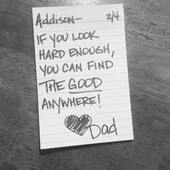 Addison- 2/4
IF YOU LOOK
HARD ENOUGH,
YOU CAN FIND
THE GOOD
ANYWHERE!
Dad